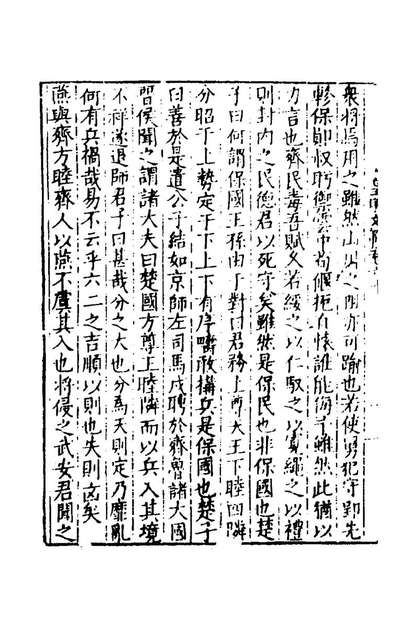 衆將焉用之雖然山川之阻亦可踰也若使勇犯守郢先
軫保鄖
力言也齊民毒吾賦久若綏之以仁馭之以寬繩之以禮
則封内之民德君以死守矣雖然是保民也非保國也楚
子曰何謂保國王孫由于對曰君務上尊天王下睦四隣
分昭于上勢定于下上下有序疇敢搆兵是保國也楚子
曰善於是遣公子結如京師左司馬戍聘於齊魯諸大國
晉侯聞之謂諸大夫曰楚國方尊王睦隣而以兵入其境
不祥遂退師君子曰甚哉分之大也分爲天則定乃靡亂
何有兵禍哉易不云乎六二之吉順以則也失則凶矣
燕與齊方睦齊人以燕不虞其入也將侵之武安君聞之